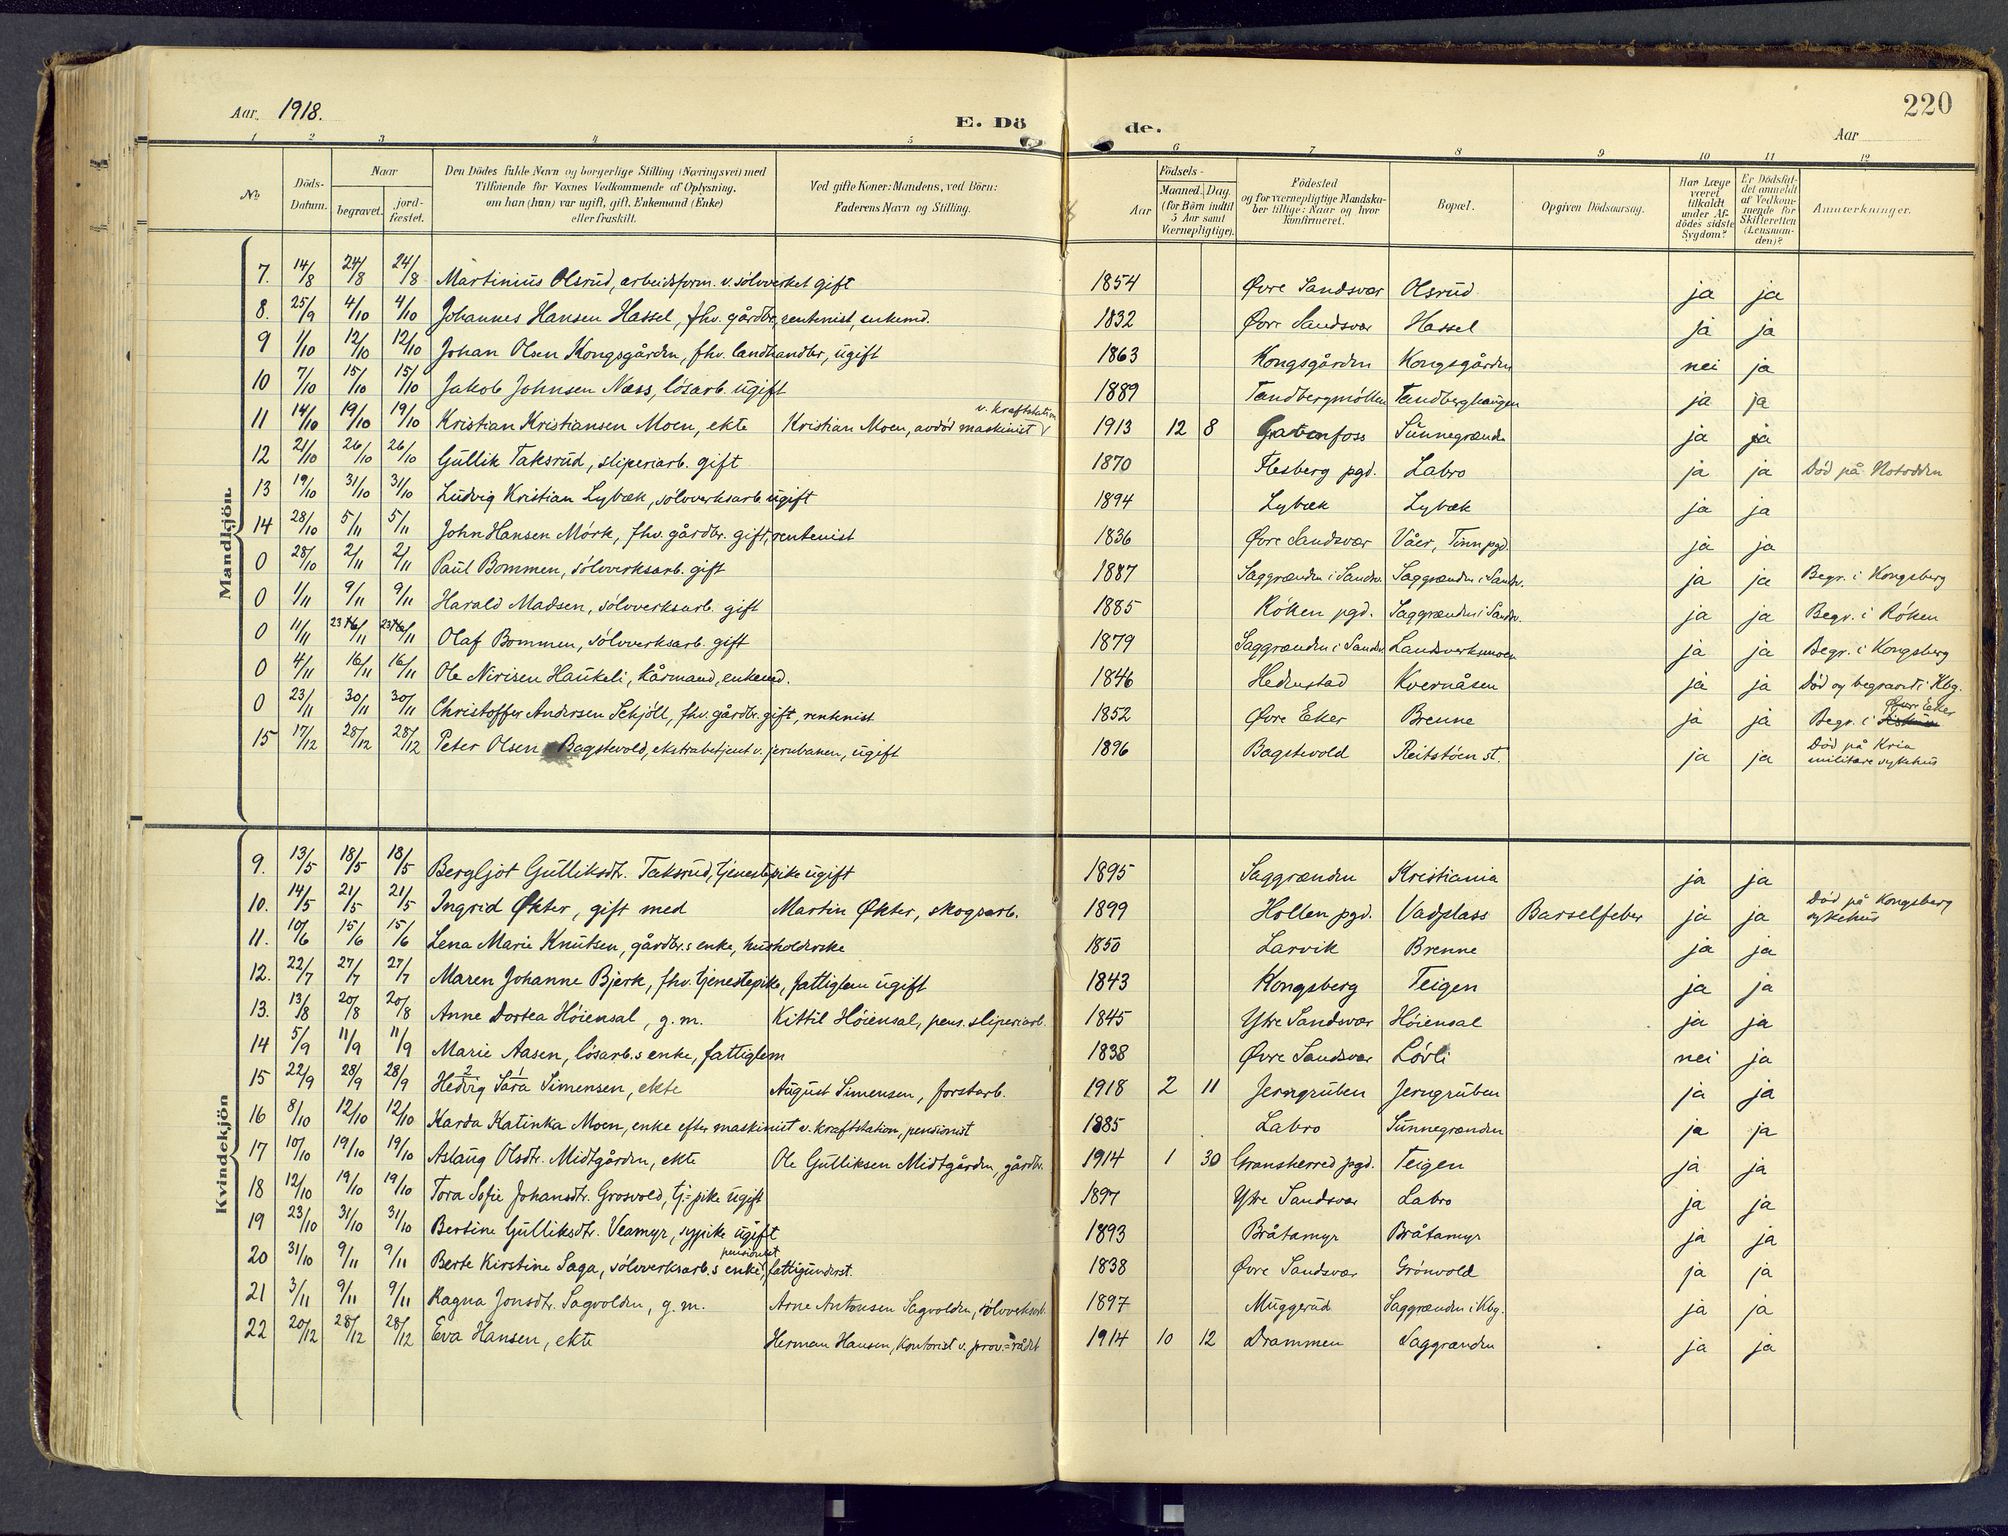 Aar. 1918.
E. Dö de.
220
Aar
1 2 3 4 5 6 7 8 9 10 11 12
No.
Döds-Datum.
Naar
begravet.
jord-fæstet.
Den Dödes fulde Navn og borgerlige Stilling (Næringsvei) med
Tilföiende for Voxnes Vedkommende af Oplysning,
om han (hun) var ugift, gift, Enkemand (Enke)
eller fraskilt.
Ved gifte Koner: Mandens, ved Börn:
Faderens Navn og Stilling.
Födsels-
Aar
Maaned. Dag.
(for Börn indtil
5 Aar samt
Værnepligtige).
Födested
og for værnepligtige Mandska-
ber tillige: Naar og hvor
konfirmeret.
Bopæl.
Opgiven Dödsaarsag.
Har Læge
været
tilkaldt
under Af-
dödes sidste
Sygdom?
Er Dödsfal-
det anmeldt
af Vedkom-
mende for
Skifteretten
(Lensman-
den)?
Anmærkninger.
Mandkjön.
7. 14/8 24/8 24/8 Martinius Olsrud, arbeidsform. v. sølvverket gift 1854 Øvre Sandsvær Olsrud ja ja
8. 25/9 4/10 4/10 Johannes Hansen Hassel, fhv. gårdbr, rentenist, enkemd. 1832 Øvre Sandsvær Hassel ja ja
9 1/10 12/10 12/10 Johan Olsen Kongsgården, fhv. landhandlr, ugift 1863 Kongsgården Kongsgården nei ja
10 7/10 15/10 15/10 Jakob Johnsen Næss, løsarb. ugift 1889 Tandbergmøllen Tandberghaugen ja ja
v. kraftstation
11 14/10 19/10 19/10 Kristian Kristiansen Moen, ekte Kristian Moen, avdød maskinist 1913 12 8 Sunnegrænden ja ja
12 21/10 26/10 26/10 Gullik Taksrud, sliperiarb. gift 1870 Flesberg pgd. Labro ja ja Død på Notodden
13 19/10 31/10 31/10 Ludvig Kristian Lybæk, sølvverksarb. ugift 1894 Lybæk Lybæk ja ja
14 28/10 5/11 5/11 John Hansen Mörk, fhv. gårdbr. gift, rentenist 1836 Øvre Sandsvær Våer, Tinn pgd. ja ja
0 28/10 2/11 2/11 Paul Bommen, sølvverksarb. gift 1887 Saggrænden i Sandsv. Saggrænden i Sandsv. ja ja Begr. i Kongsberg
0 1/11 9/11 9/11 Harald Madsen, sølvverksarb. gift 1885 Røken pgd. Saggrænden i Sandsv. ja ja Begr. i Røken
0 11/11 23/11 23/11 Olaf Bommen, sølvverksarb. gift 1879 Saggrænden i Sandsv. Landsverksmoen ja ja Begr. i Kongsberg
0 4/11 16/11 16/11 Ole Nirisen Haukeli, kårmand, enkemd. 1846 Hedenstad Kvernåsen ja ja Död og begravet i Kbg.
Øvre Eker
0 23/11 30/11 30/11 Christoffer Andersen Sekjöll, fhv. gårdbr. gift, rentenist 1852 Øvre Eker Brenne ja ja Begr. i
15 17/12 28/12 28/12 Peter Olsen Bagstevold, ekstrabetjent v. jernbanen, ugift 1896 Bagstevold Reitstöen st. ja ja Död på Kria
militære sykehus
Kvindekjön
9. 13/5 18/5 18/5 Bergljot Gulliksdtr. Taksrud, tjenestepike ugift 1895 Saggrænden Kristiania ja ja
10. 14/5 21/5 21/5 Ingrid Økter, gift med Martin Økter, skogsarb. 1899 Hollen pgd. Vadplass Barselfeber ja ja Död på Kongsberg
sykehus
11. 10/6 15/6 15/6 Lena Marie Knutsen, gårdbr.s enke, husholderske 1850 Larvik Brenne ja ja
12. 22/7 27/7 27/7 Maren Johanne Bjerk, fhv. tjenestepike, fattiglem ugift 1843 Kongsberg Teigen ja ja
13. 13/8 20/8 20/8 Anne Dortea Höiensal, g. m. Kittil Höiensal, pens. sliperiarb. 1845 Ytre Sandsvær Höiensal ja ja
14 5/9 11/9 11/9 Marie Aasen, lösarb.s enke, fattiglem 1838 Øvre Sandsvær Lövli nei ja
2 1
15 22/9 28/9 28/9 Hedvig Sara Simensen, ekte August Simensen, forstarb. 1918 2 11 Jerngruben Jerngruben ja ja
16 8/10 12/10 12/10 Karda Katinka Moen, enke efter maskinist v. kraftstation, pensionist 1885 Labro Sunnegrænden ja ja
17 10/10 19/10 19/10 Aslaug Olsdtr. Midtgården, ekte Ole Gulliksen Midtgården, gårdbr. 1914 1 30 Gransherred pgd. Teigen ja ja
18 12/10 19/10 19/10 Tora Sofie Johansdtr. Grosvold, tj.=pike ugift 1897 Ytre Sandsvær Labro ja ja
19 23/10 31/10 31/10 Bertine Gulliksdtr. Veamyr, sypike ugift 1893 Bråtamyr Bråtamyr ja ja
pensionist
20 31/10 9/11 9/11 Berte Kirstine Saga, sølvverksarb.s enke, fattigunderst. 1838 Øvre Sandsvær Grönvold ja ja
21 3/11 9/11 9/11 Ragna Jonsdtr. Sagvolden, g. m. Arne Antonsen Sagvolden, sølvverksarb. 1897 Muggerud Saggrænden i Kbg. ja ja
22 20/12 28/12 28/12 Eva Hansen, ekte Herman Hansen, kontorist v. prov.=rådet 1914 10 12 Drammen Saggrænden ja ja